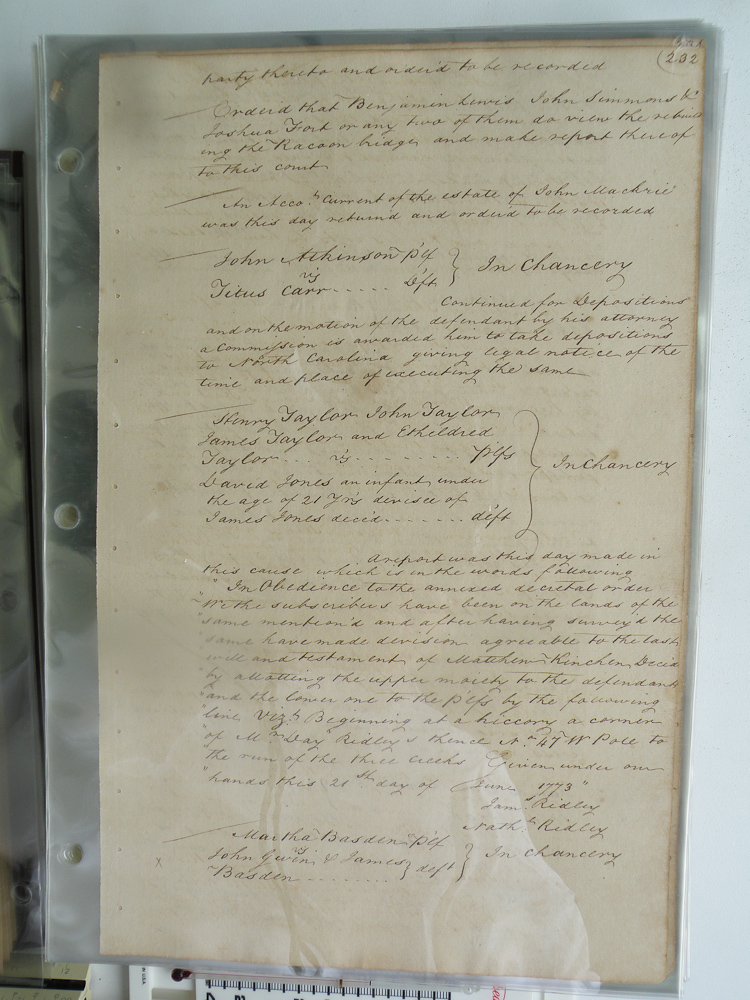 232
party thereto and orderd to be recorded
Orderd that Benjamin Lewis John Simmons &
Joshua Fort or any two of them do view the rebuild
ing the Racoon bridge and make report thereof
to this court
An Acco.t Current of the estate of John Mackrie
was this day returnd and orderd to be recorded
John Atkinson Plf
vs } In Chancery
Titus Carr..... Deft
Continued for Depositions
and on the motion of the defendant by his attorney
a Commission is awarded him to take depositions
to North Carolina giving legal notice of the
time and place of executing the same
Henry Taylor John Taylor
James Taylor and Etheldred
Taylor.... vs ........ Plfs
David Jones an infant under } In Chancery
the age of 21 Yrs devisee of
James Jones decd........ deft
A report was this day made in
this cause which is in the words following
"In Obedience to the annexed decretal order
"We the subscribers have been on the lands of the
"same mention'd and after having survey'd the
"same have made division agreeable to the last
will and testament of Matthew Kinchen Decd
by allotting the upper moiety to the defendant
"and the lower one to the Plfs by the following
"line Viz.t Beginning at a hiccory a corner
"of Mr Day Ridley's thence No 47 W Pole to
"the run of the three creeks Given under our
"hands this 21st day of June 1773"
Jam.s Ridley
Nath.l Ridley
Martha Basden Plf
vs
John Gwin & James } deft } In Chancery
Basden .........
x